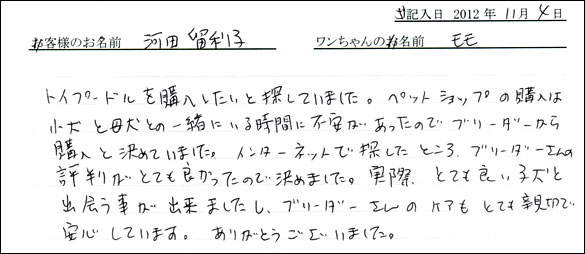 記入日 2012年 11月 4日
お客様のお名前 河田 留利子 ワンちゃんのお名前 モモ
トイプードルを購入したいと探していました。ペットショップの購入は
小犬と母犬との一緒にいる時間に不安があったのでブリーダーから
購入と決めていました。インターネットで探したところ、ブリーダーさんの
評判がとても良かったので決めました。実際、とても良い子犬と
出会う事が出来ましたし、ブリーダーさんのケアもとても親切で
安心しています。ありがとうございました。